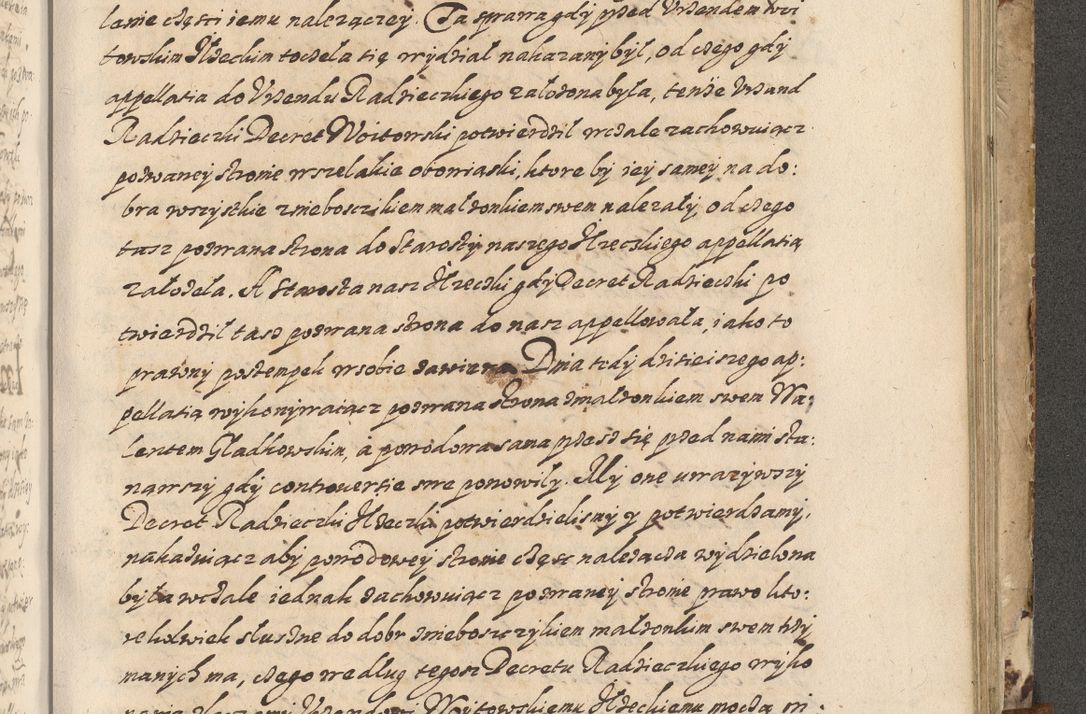 lenie częsci iemu nalezączey. Ta sprawa gdy przed Vrzendem Woi
towskim Ilżeckim toczela się wydział nakazany był, od czego gdy
appellatia do Vrzendu Radzieczkiego założona była, tenże Vrzand
Radzieczki Decret Woitowski potwierdził wczale zachowuiącz
pozwaney stronie wszelakie obowiąski, ktore by iey samey na do:
bra wszystkie zniebosczikiem małżonkiem swem należały, od czego
tasz pozwana strona do Starosty naszego Ilzeckiego appellatią
założela. A Starosta nasz Ilzeczki gdy Decret Radzieczki po
twierdził tasz pozwana strona do nasz appellowała, iako to
prawny postempek w sobie zawiera. Dnia tedy dzisieiszego ap:
pellatią wykonywaiącz pozwana strona zmałżonkiem swem Wa:
lentem Gładkowskim, a powodowa sama przesz się przed nami sta:
nąwszy gdy controuersie swe ponowiły. My one uwazywszy
Decret Radzieczki Ilżeczki potwierdzielismy y potwierdzamy,
nakazuiącz aby powodowey stronie część należącza wydzielona
była wczale iednak zachowuiącz pozwaney stronie prawo kto:
rekolwiek słuszne do dobr zniebosczykiem małżonkim swem trzy
manych ma, czego według tegosz Decretu Radzieczkiego wyko